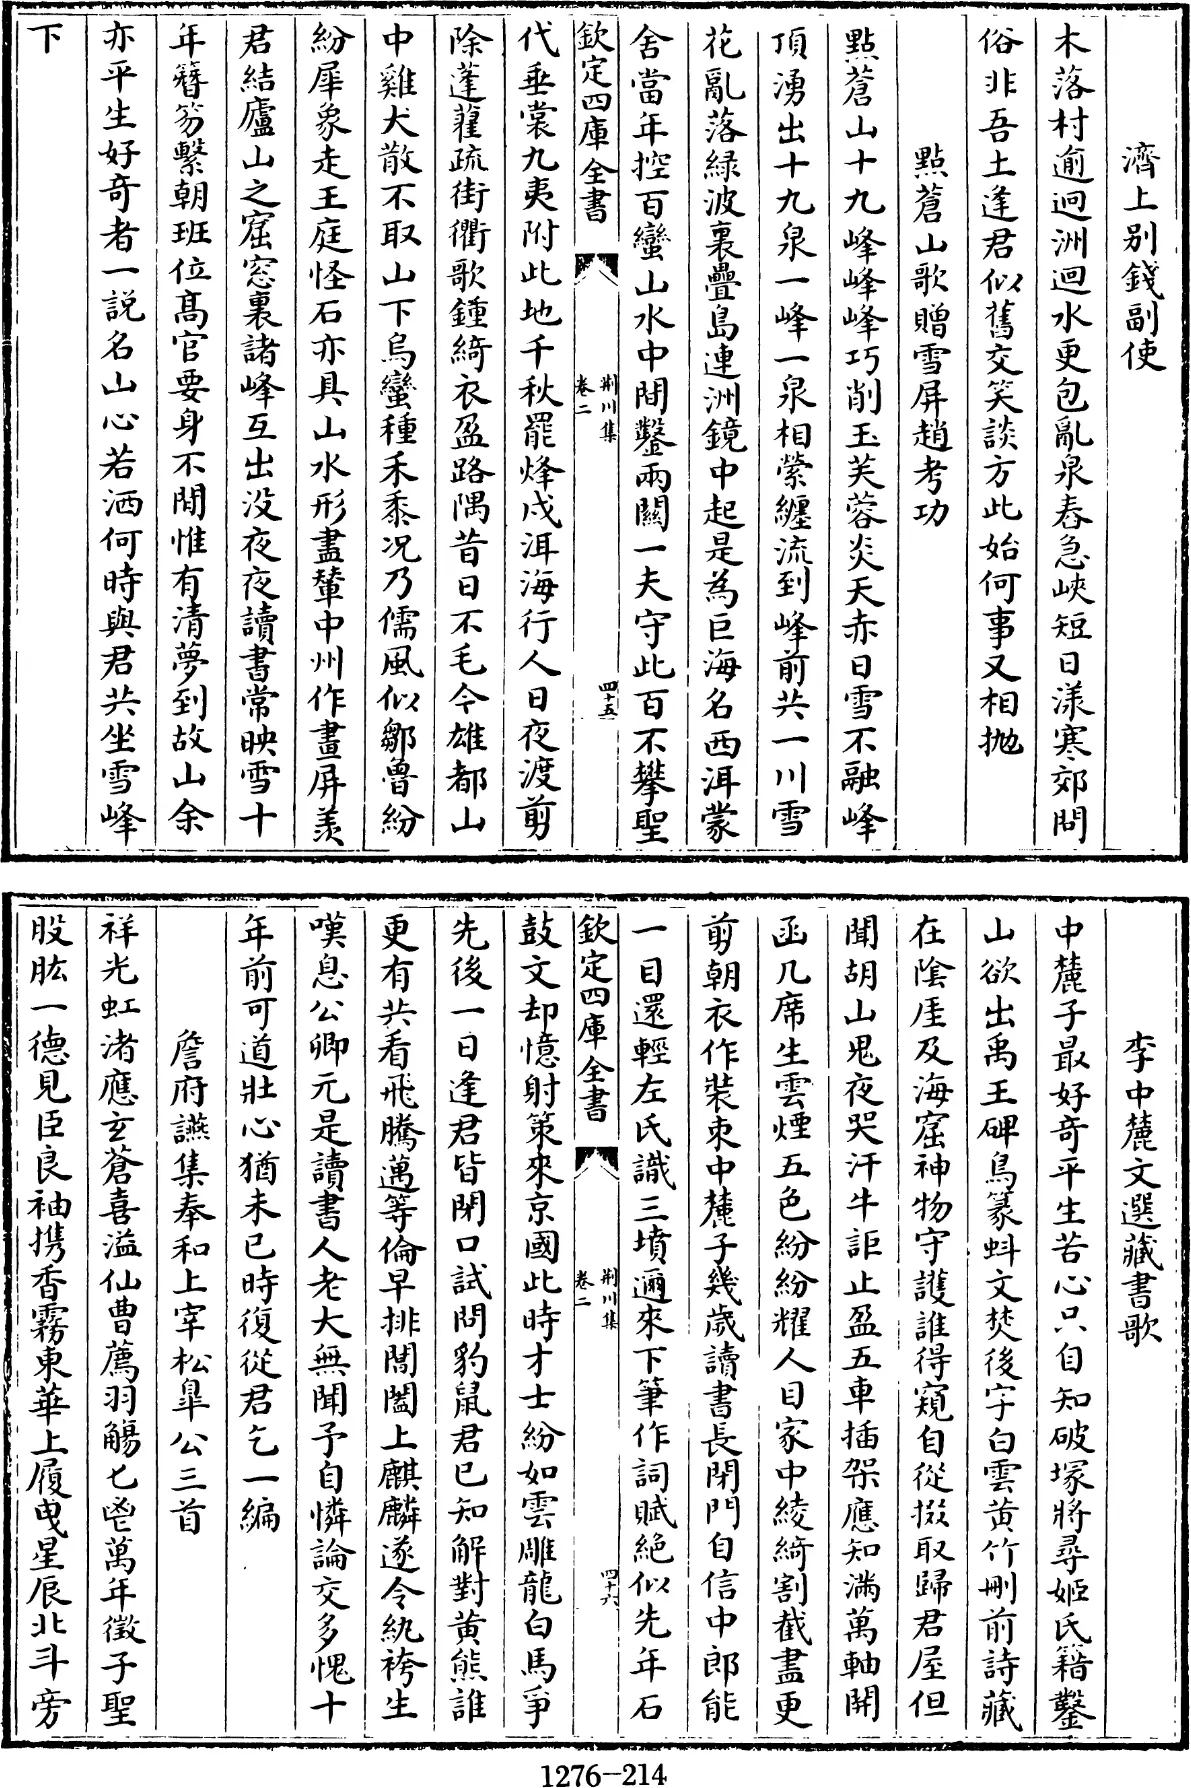 濟上别錢副使
木落村逾迥洲迴水更包亂泉舂急峽短日漾寒郊問
俗非吾土逢君似舊交笑談方此始何事又相抛
點蒼山歌贈雪屏趙考功
點蒼山十九峰峰峰巧削玉芙蓉炎天赤日雪不融峰
頂湧出十九泉一峰一泉相縈纏流到峰前共一川雪
花亂落緑波裏疊島連洲鏡中起是為巨海名西洱蒙
舍當年控百蠻山水中間鑿兩關一夫守此百不攀聖
欽定四庫全書
荆川集
卷二
四十五
代垂裳九夷附此地千秋罷烽戍洱海行人日夜渡剪
除蓬藋疏街衢歌鍾綺衣盈路隅昔日不毛今雄都山
中雞犬散不取山下烏蠻種禾黍况乃儒風似鄒魯紛
紛犀象走王庭怪石亦具山水形盡輦中州作畫屏羡
君結廬山之窟窓裏諸峰互出没夜夜讀書常映雪十
年簪笏繫朝班位髙官要身不閒惟有清夢到故山余
亦平生好奇者一説名山心若洒何時與君共坐雪峰
下
李中麓文選藏書歌
中麓子最好奇平生苦心只自知破塚將尋姬氏籍鑿
山欲出禹王碑鳥篆蚪文焚後字白雲黄竹刪前詩藏
在陰厓及海窟神物守護誰得窺自從掇取歸君屋但
聞胡山鬼夜哭汗牛詎止盈五車插架應知滿萬軸開
函几席生雲煙五色紛紛耀人目家中綾綺割截盡更
剪朝衣作裝束中麓子幾歳讀書長閉門自信中郎能
一目還輕左氏識三墳邇來下筆作詞賦絶似先年石
欽定四庫全書
荆川集
卷二
四十六
鼓文却憶射策來京國此時才士紛如雲雕龍白馬爭
先後一日逢君皆閉口試問豹鼠君已知解對黄熊誰
更有共看飛騰邁等倫早排閶闔上麒麟遂令紈袴生
嘆息公卿元是讀書人老大無聞予自憐論交多愧十
年前可道壯心猶未已時復從君乞一編
詹府讌集奉和上宰松臯公三首
祥光虹渚應玄蒼喜溢仙曹薦羽觴匕鬯萬年徵子聖
股肱一德見臣良袖携香霧東華上履曵星辰北斗旁
1276-214